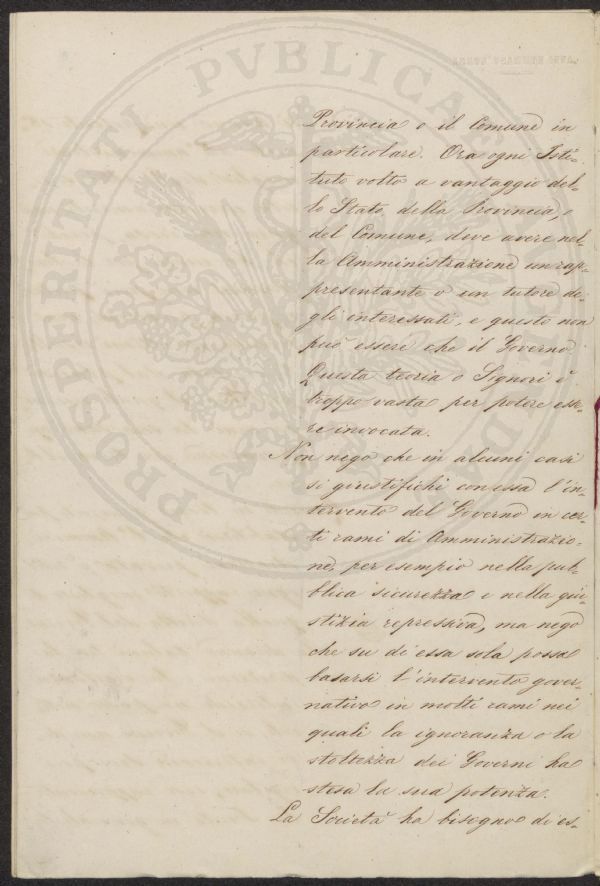 PROSPERITATI PVBLICAE
Provincia o il Comune in
particolare. Ora ogni Isti-
tuto volto a vantaggio del-
lo Stato, della Provincia, o
del Comune, deve avere nel-
la Amministrazione un rap-
presentante o un tutore de-
gli interessati, e questo non
può essere che il Governo.
Questa teoria o Signori è
troppo vasta per potere esse-
re invocata.
Non nego che in alcuni casi
si giustifichi con essa l'in-
tervento del Governo in cer-
ti rami di Amministrazio-
ne, per esempio nella pub-
blica sicurezza e nella giu-
stizia repressiva, ma nego
che su di essa sola possa
basarsi l'intervento gover-
nativo in molti rami nei
quali la ignoranza o la
stoltezza dei Governi ha
stesa la sua potenza.
La Società ha bisogno di es-